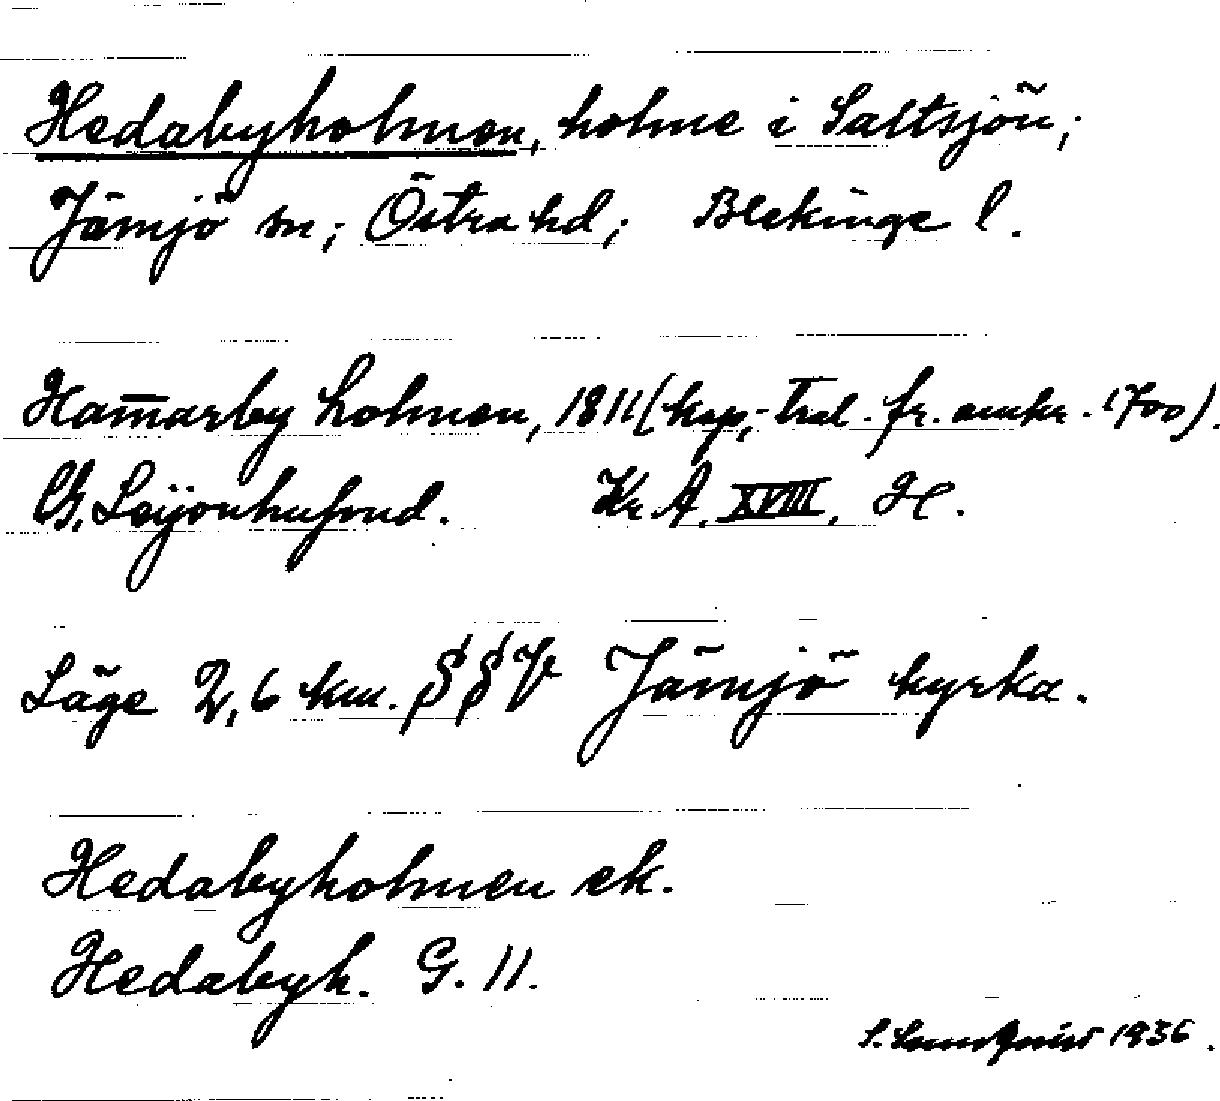 Hedabyholmen, holme i Saltsjön;
Jämjö sn; Östra hd; Blekinge l.
Ham̄arby holmen, 1811 (kop; tral. fr. omkr. 1700).
G. Leijonhufvud. Kr A. XVIII. H.
Läge 2,6 km. SSV Jämjö kyrka.
Hedabyholmen ek.
Hedabyh. G. 11.
S. 1936.